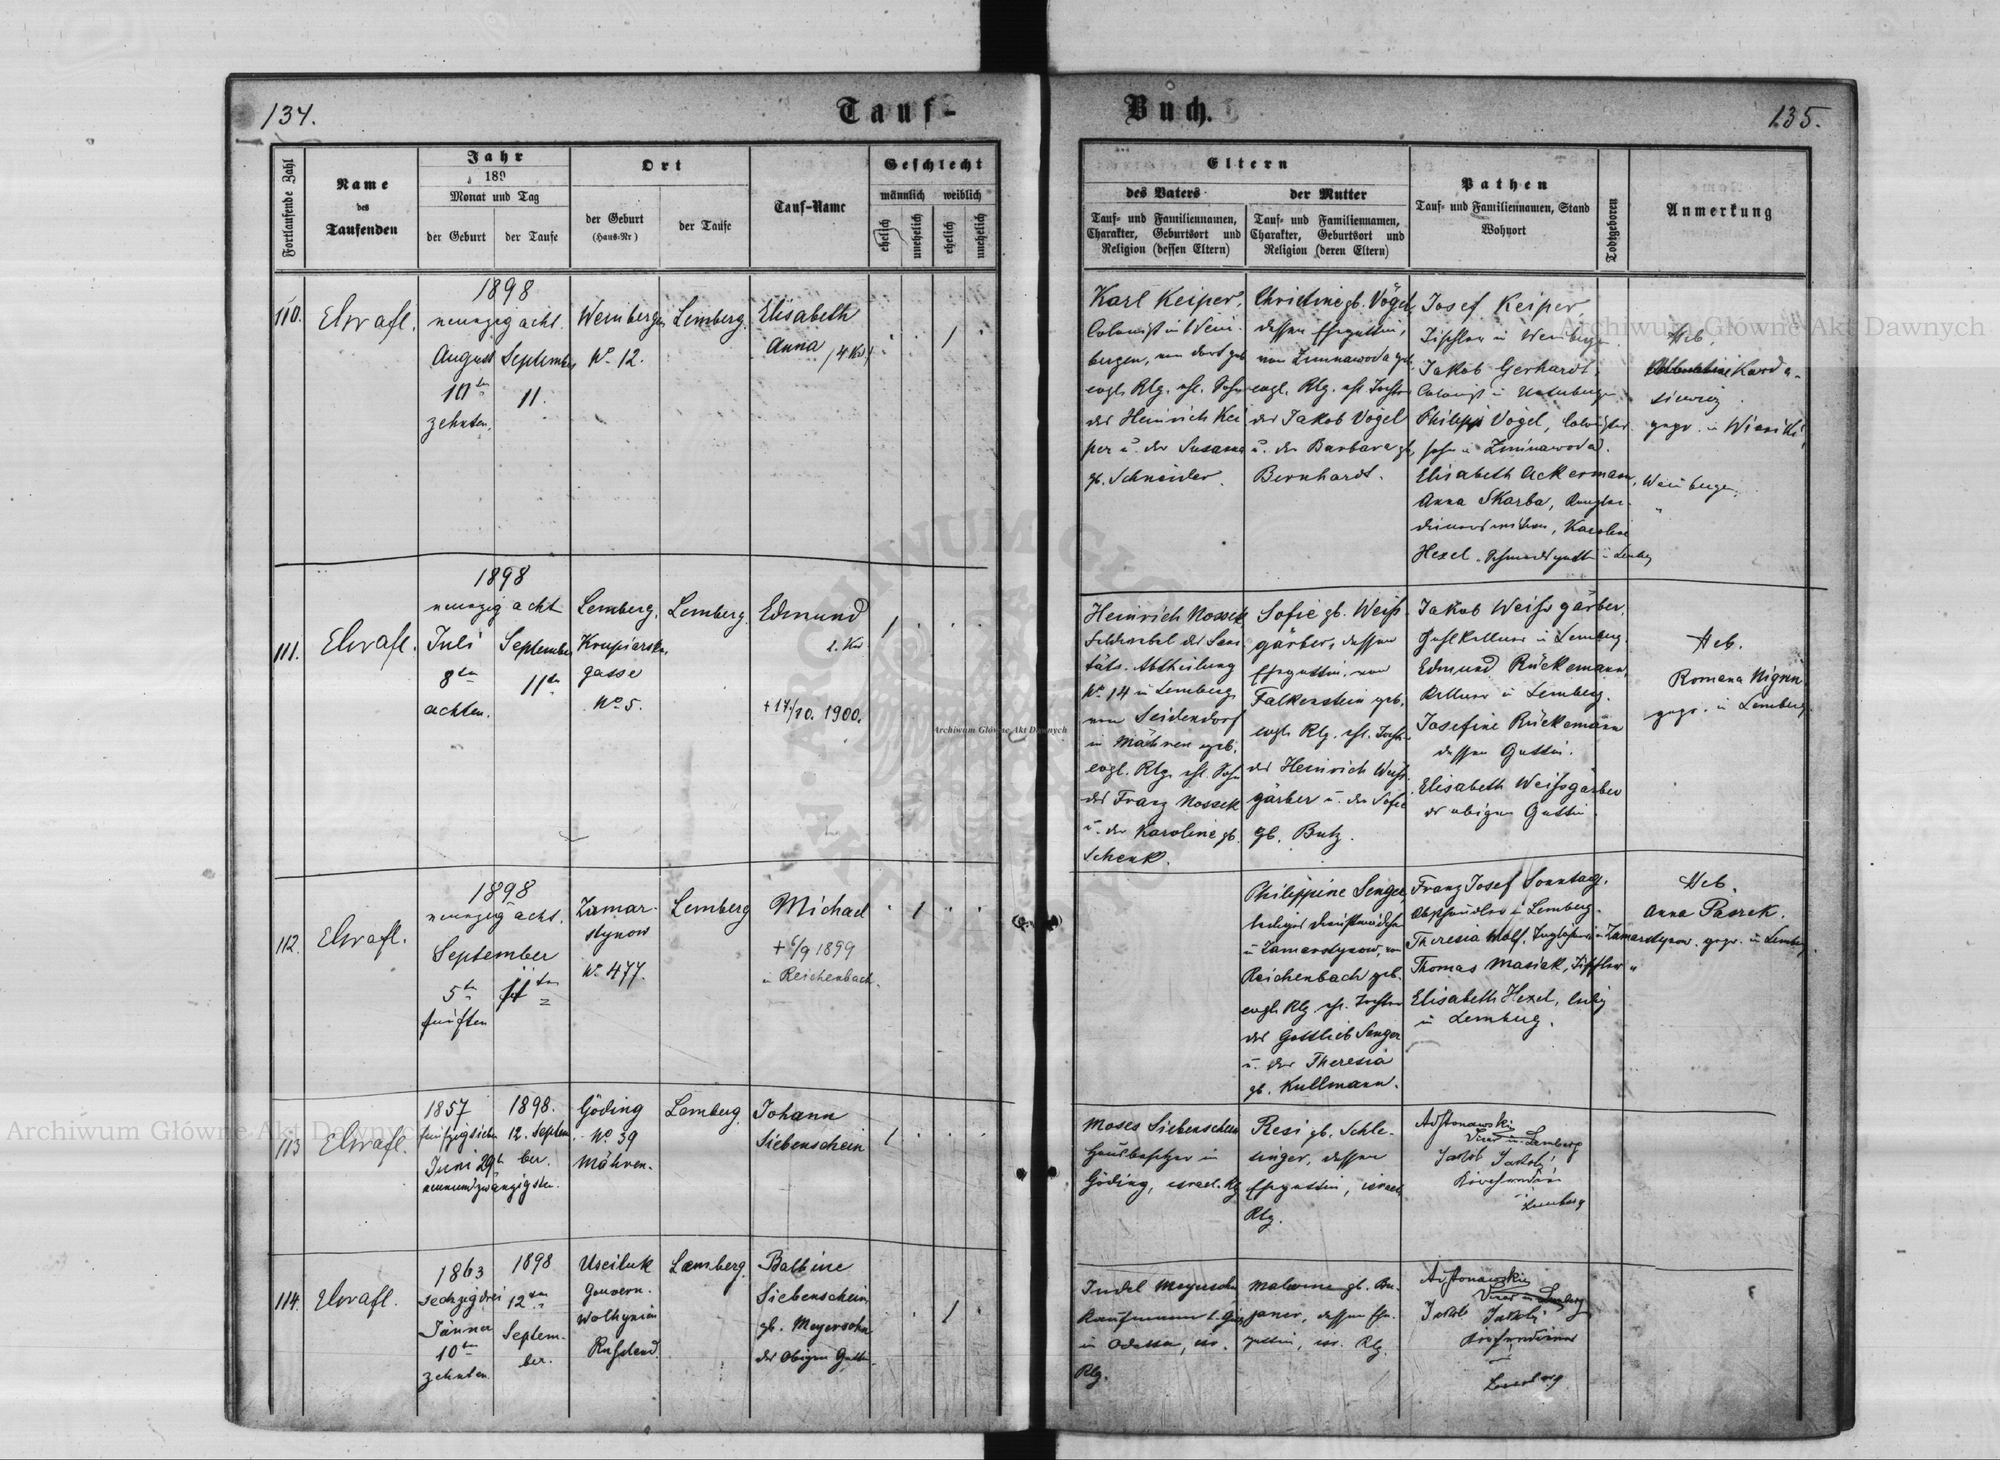 134.
Tauf-
Buch.
135.
Fortlaufende Zahl
Name
des
Taufenden
Jahr
189
Monat und Tag
der Geburt
der Taufe
Ort
der Geburt
(Haus-Nr)
der Taufe
Tauf-Name
Geschlecht
männlich
weiblich
ehelich
unehelich
ehelich
unehelich
Eltern
des Vaters
Tauf- und Familiennamen,
Charakter, Geburtsort und
Religion (dessen Eltern)
der Mutter
Tauf- und Familiennamen,
Charakter, Geburtsort und
Religion (deren Eltern)
Pathen
Tauf- und Familiennamen, Stand
Wohnort
Todtgeboren
Anmerkung
110.
1898
neunzig acht.
August
10ten
zehnten.
September
11.
Weinbergen
No 12.
Lemberg.
Elisabeth
Anna
1
Karl Keiper,
Colonist in Wein-
bergen, von dort geb
evgl. Rlg. ehl. Sohn
des Heinrich Kei
per u. der Susanna
gb. Schneider.
Christine gb. Vogel,
dessen Ehegattin,
von Zimnawoda geb.
evgl. Rlg. ehl. Tochter
des Jakob Vogel
u. der Barbara gb.
Bernhardt.
Josef Keiper,
Tischler in Weinbergen
Jakob Gerhardt,
Colonist in Unterbergen
Philipp Vogel,
Zimnawoda.
Elisabeth Ackermann, Weinbergen.
Anna Skarba,
Karoline
Hexel, in Lemberg
Heb.
gepr. in
111.
1898
neunzig acht
Juli
8ten
achten.
September
11ten
Lemberg,
Krupiarska
gasse
No 5.
Lemberg.
Edmund
2. Kd
+ 17/10. 1900.
1
Heinrich Nossek
Feldwebel der Sani
täts-Abtheilung
No 14 in Lemberg,
von Seidendorf
in Mähren geb.
evgl. Rlg. ehl. Sohn
des Franz Nossek
u. der Karoline gb.
Schenk.
Sofie gb. Weiss
gärber, dessen
Ehegattin, von
Falkenstein geb.
evgl. Rlg. ehl. Tochter
des Heinrich Weiss
gärber u. der Sofie
gb. Butz.
Jakob Weissgärber,
in Lemberg.
Edmund Rückemann,
Kellner in Lemberg.
Josefine Rückemann
dessen Gattin.
Elisabeth Weissgärber
des obigen Gattin.
Heb.
Romana
gepr. in Lemberg.
112.
1898
neunzig acht.
September
5ten
fünften
11ten
Zamar-
stynow
No 477.
Lemberg
Michael
+ 6/9 1899
in Reichenbach.
1
Philippine Senger,
lediges Dienstmädchen
in Zamarstynow, von
Reichenbach geb.
evgl. Rlg. ehl. Tochter
des Gottlieb Senger
u. der Theresia
gb. Kullmann.
Franz Josef Sonntag,
Obsthändler in Lemberg.
Theresia Wolf, in Zamarstynow.
Thomas Masiek, Tischler "
Elisabeth Hexel, ledig
in Lemberg.
Heb.
Anna Paszek.
gepr. in Lemberg.
113
1857
fünfzig sieben
Juni 29t
neunundzwanzigsten.
1898.
12. Septem
ber.
Göding
No 39
Mähren.
Lemberg.
Johann
Siebenschein
1
Moses Siebenschein
Hausbesitzer in
Göding, israel. Rlg
Resi gb. Schle-
singer, dessen
Ehegattin, israel.
Rlg.
Vicar in Lemberg
Jakob Jakobi
Kirchendiener
in Lemberg
114.
1863
sechzig drei
Jänner
10ten
zehnten
1898
12ten
Septem-
ber.
Usciluk
Gouvern.
Wolhynien
Russland.
Lemberg.
Balbine
Siebenschein
gb. Meyersohn
des Obigen Gattin.
1
Judel Meyersohn
Kaufmann
in Odessa, isr.
Rlg.
Malwine gb. Bu-
janer, dessen Ehe-
gattin, isr. Rlg.
Vicar in Lemberg
Jakob Jakobi
Kirchendiener
in
Lemberg
Archiwum Główne Akt Dawnych
Archiwum Główne Akt Dawnych
Archiwum Główne Akt Dawnych